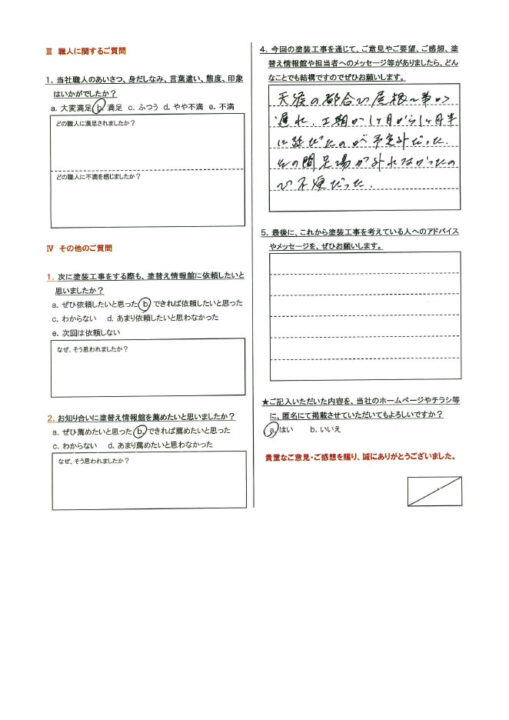 Ⅲ 職人に関するご質問
1. 当社職人のあいさつ、身だしなみ、言葉遣い、態度、印象
はいかがでしたか?
a. 大変満足 b. 満足 c. ふつう d. やや不満 e. 不満
どの職人に満足されましたか?
どの職人に不満を感じましたか?
Ⅳ その他のご質問
1. 次に塗装工事をする際も、塗替え情報館に依頼したいと
思いましたか?
a. ぜひ依頼したいと思った b. できれば依頼したいと思った
c. わからない d. あまり依頼したいと思わなかった
e. 次回は依頼しない
なぜ、そう思われましたか?
2. お知り合いに塗替え情報館を薦めたいと思いましたか?
a. ぜひ薦めたいと思った b. できれば薦めたいと思った
c. わからない d. あまり薦めたいと思わなかった
なぜ、そう思われましたか?
4. 今回の塗装工事を通じて、ご意見やご要望、ご感想、塗
替え情報館や担当者へのメッセージ等がありましたら、どん
なことでも結構ですのでぜひお願いします。
天候の都合で屋根工事が
遅れ、工期が1ヶ月から1ヶ月半
に延びたのが予定外だった。
その間足場が外れなかったの
で不便だった.
5. 最後に、これから塗装工事を考えている人へのアドバイス
やメッセージを、ぜひお願いします。
★ご記入いただいた内容を、当社のホームページやチラシ等
に、匿名にて掲載させていただいてもよろしいですか?
a. はい b. いいえ
貴重なご意見・ご感想を賜り、誠にありがとうございました。